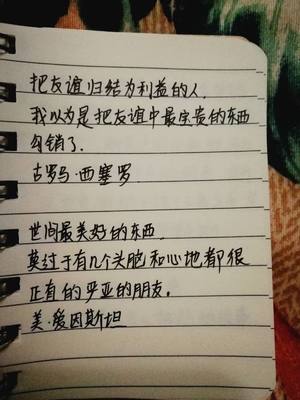 把友谊归结为利益的人,
我以为是把友谊中最宝贵的东西
勾销了.
古罗马·西塞罗
世间最美好的东西,
莫过于有几个头脑和心地都很
正直的严正的朋友。
美·爱因斯坦